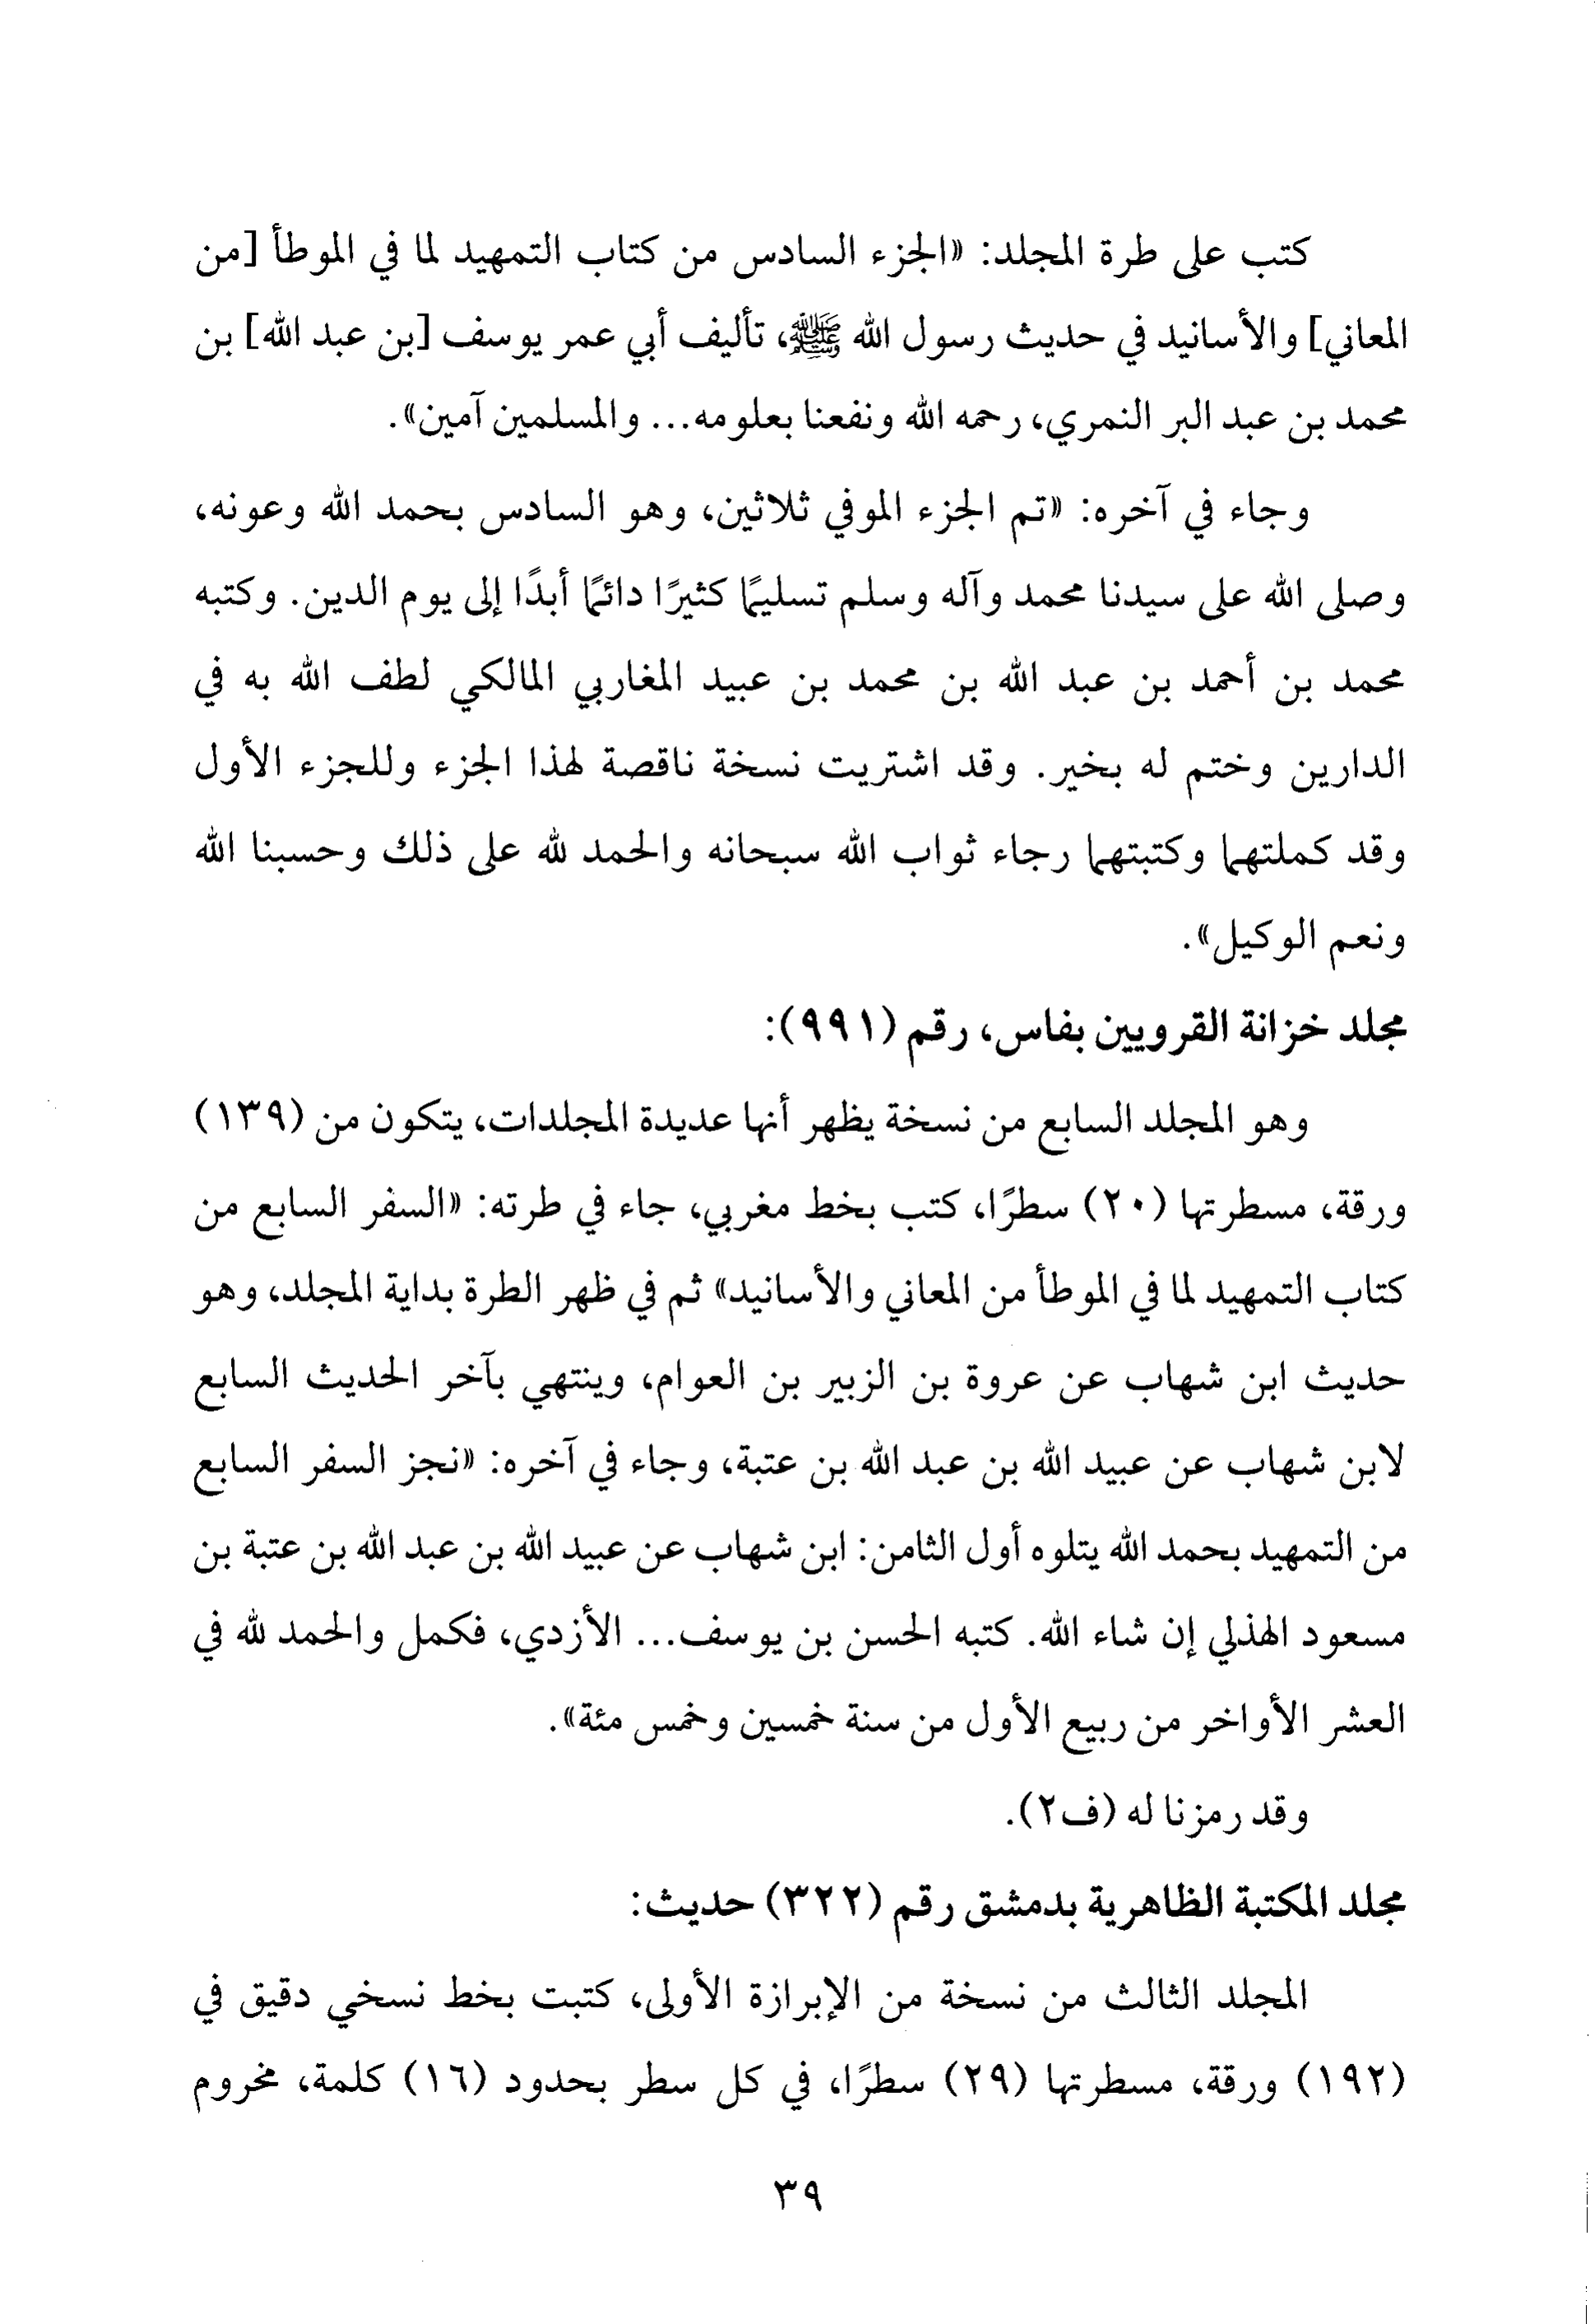 كتب على طرة المجلد: «الجزء السادس من كتاب التمهيد لما في الموطأ [من
المعاني] والأسانيد في حديث رسول الله ﷺ، تأليف أبي عمر يوسف [بن عبد الله] بن
محمد بن عبد البر النمري، رحمه الله ونفعنا بعلومه... والمسلمين آمين».
وجاء في آخره: «تم الجزء الموفي ثلاثين، وهو السادس بحمد الله وعونه،
وصلى الله على سيدنا محمد وآله وسلم تسليمًا كثيرًا دائمًا أبدًا إلى يوم الدين. وكتبه
محمد بن أحمد بن عبد الله بن محمد بن عبيد المغاربي المالكي لطف الله به في
الدارين وختم له بخير. وقد اشتريت نسخة ناقصة لهذا الجزء وللجزء الأول
وقد كملتهما وكتبتهما رجاء ثواب الله سبحانه والحمد لله على ذلك وحسبنا الله
ونعم الوكيل».
مجلد خزانة القرويين بفاس، رقم (٩٩١):
وهو المجلد السابع من نسخة يظهر أنها عديدة المجلدات، يتكون من (١٣٩)
ورقة، مسطرتها (٢٠) سطرًا، كتب بخط مغربي، جاء في طرته: «السفر السابع من
كتاب التمهيد لما في الموطأ من المعاني والأسانيد» ثم في ظهر الطرة بداية المجلد، وهو
حديث ابن شهاب عن عروة بن الزبير بن العوام، وينتهي بآخر الحديث السابع
لابن شهاب عن عبيد الله بن عبد الله بن عتبة، وجاء في آخره: «نجز السفر السابع
من التمهيد بحمد الله يتلوه أول الثامن: ابن شهاب عن عبيد الله بن عبد الله بن عتبة بن
مسعود الهذلي إن شاء الله. كتبه الحسن بن يوسف... الأزدي، فكمل والحمد لله في
العشر الأواخر من ربيع الأول من سنة خمسين وخمس مئة».
وقد رمزنا له (ف٢).
مجلد المكتبة الظاهرية بدمشق رقم (٣٢٢) حديث:
المجلد الثالث من نسخة من الإبرازة الأولى، كتبت بخط نسخي دقيق في
(١٩٢) ورقة، مسطرتها (٢٩) سطرًا، في كل سطر بحدود (١٦) كلمة، مخروم
٣٩